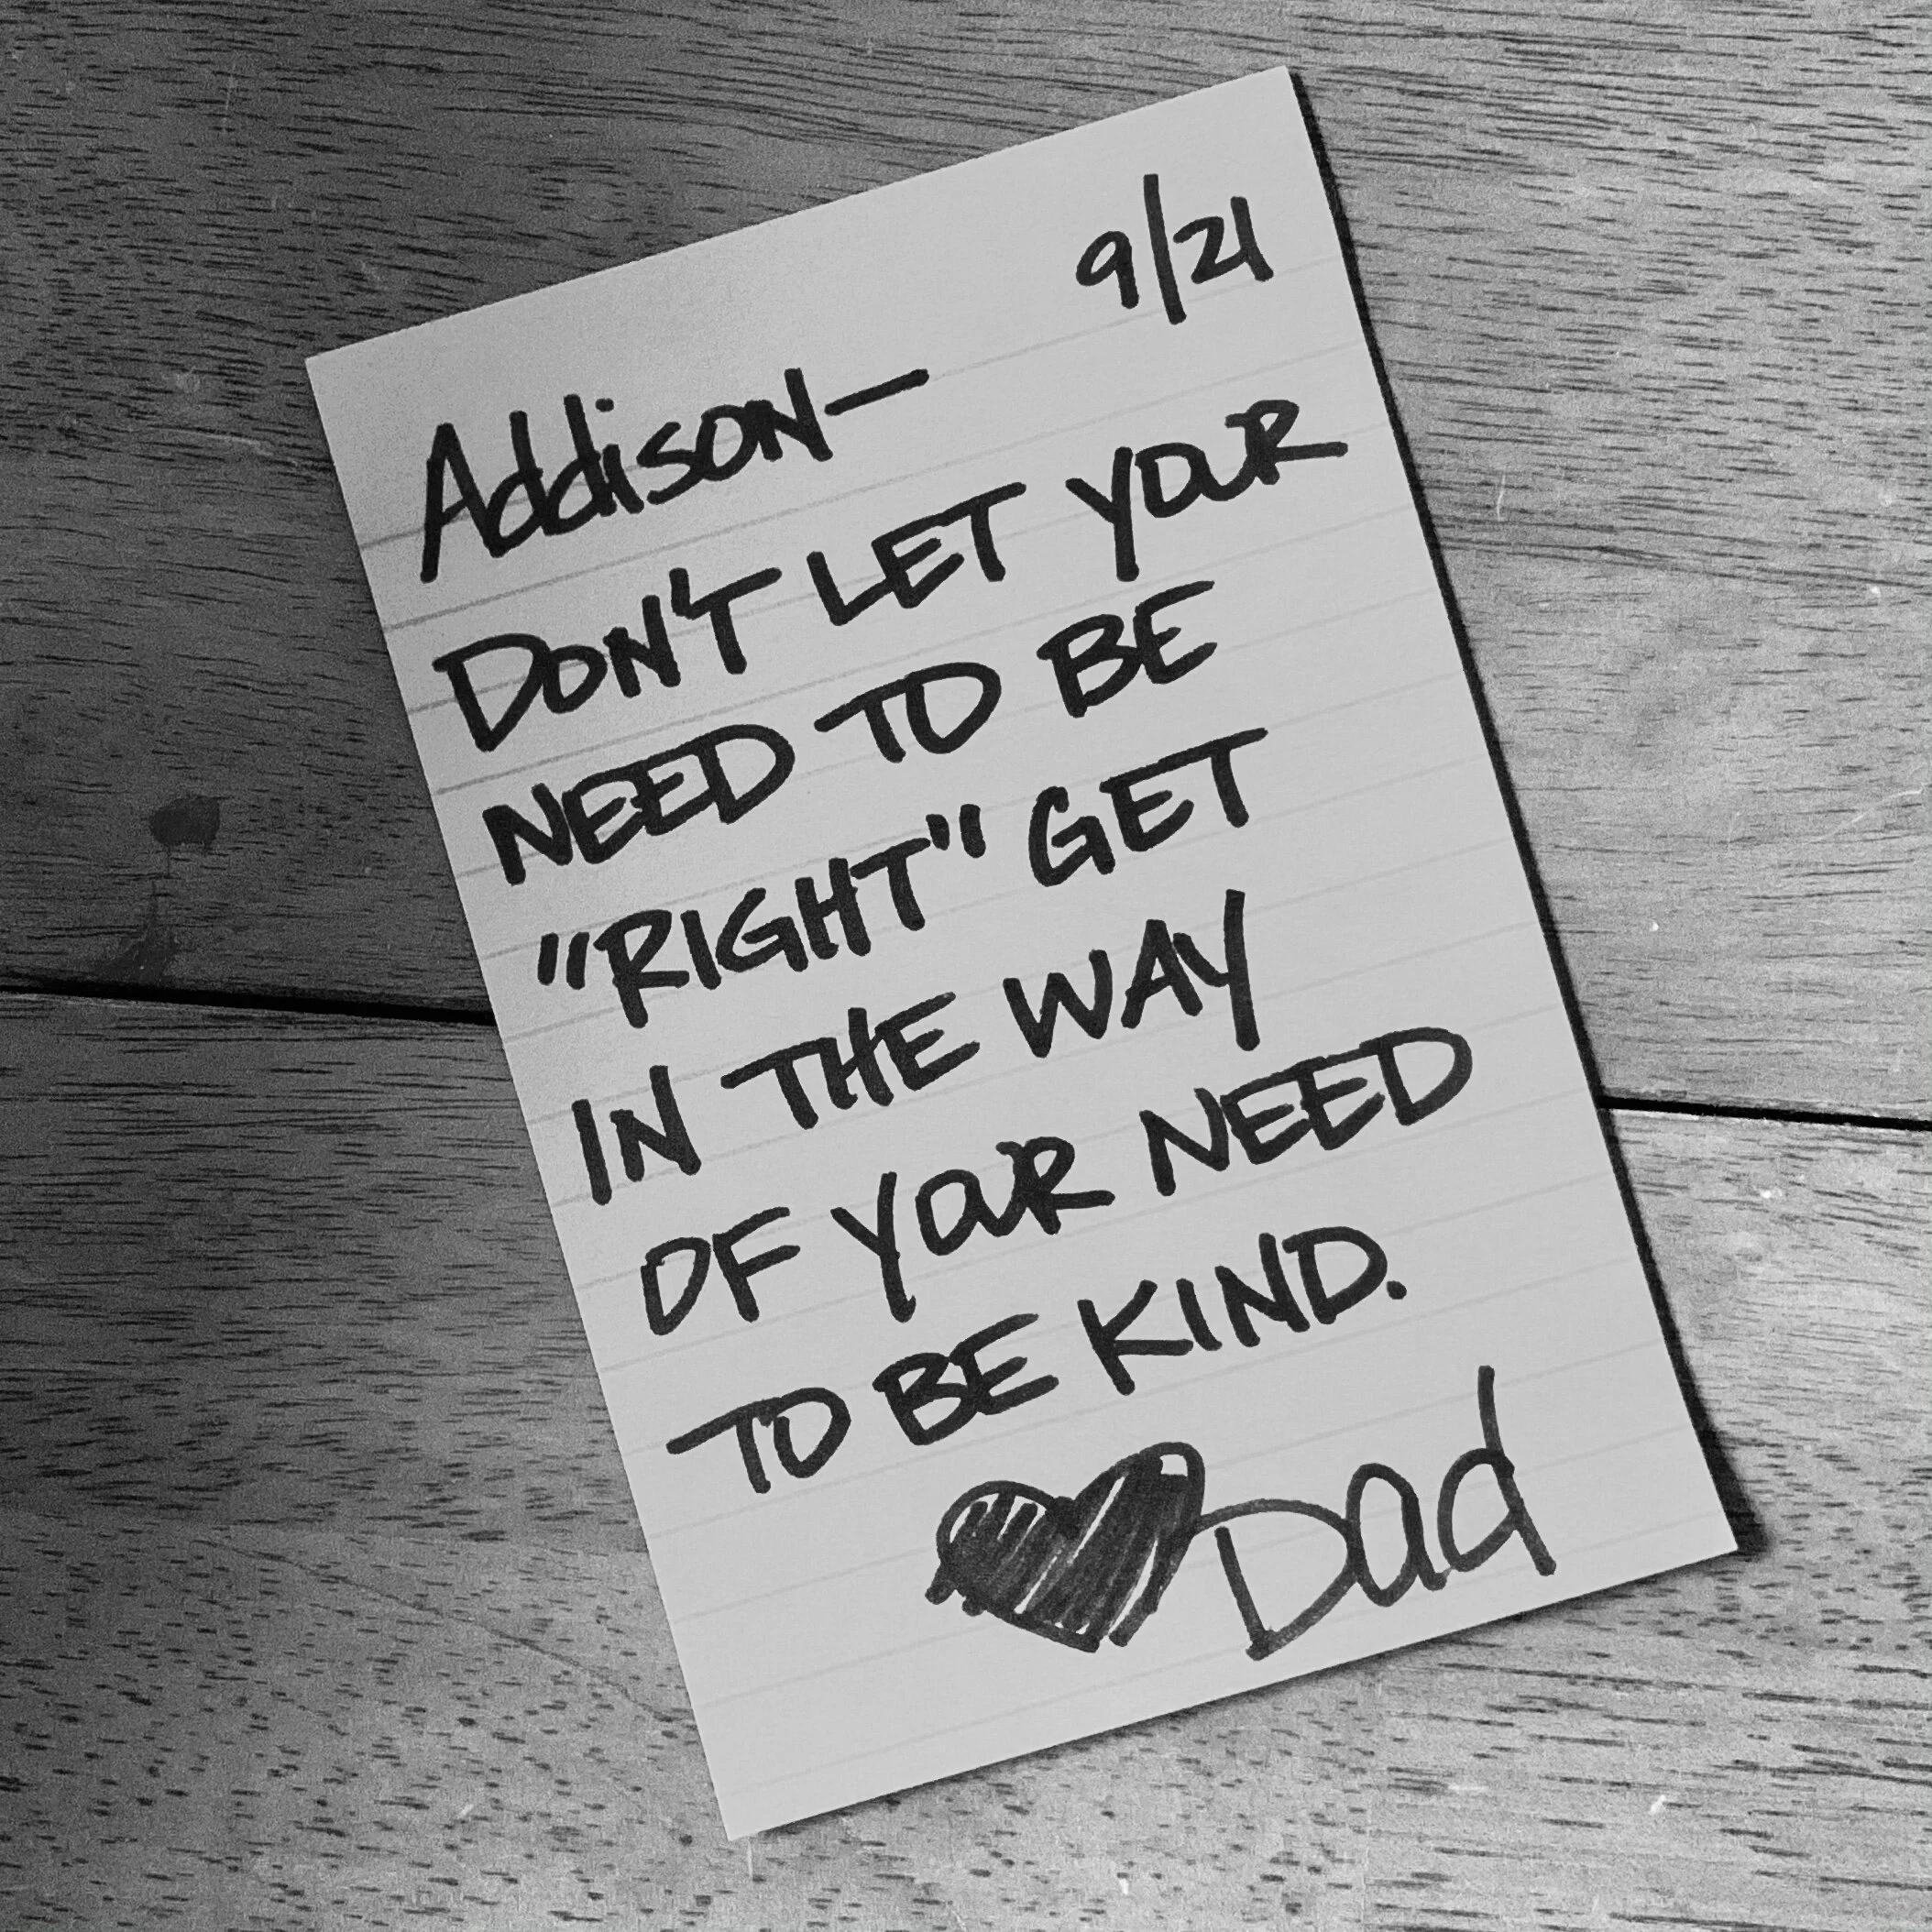 9/21
Addison—
DON'T LET YOUR
NEED TO BE
"RIGHT" GET
IN THE WAY
OF YOUR NEED
TO BE KIND.
♥ Dad